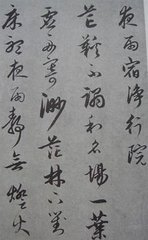 夜雨宿淨行院
芒鞵不蹋利名場一葉
虛舟寄渺茫林下對
床聽夜雨靜無燈火